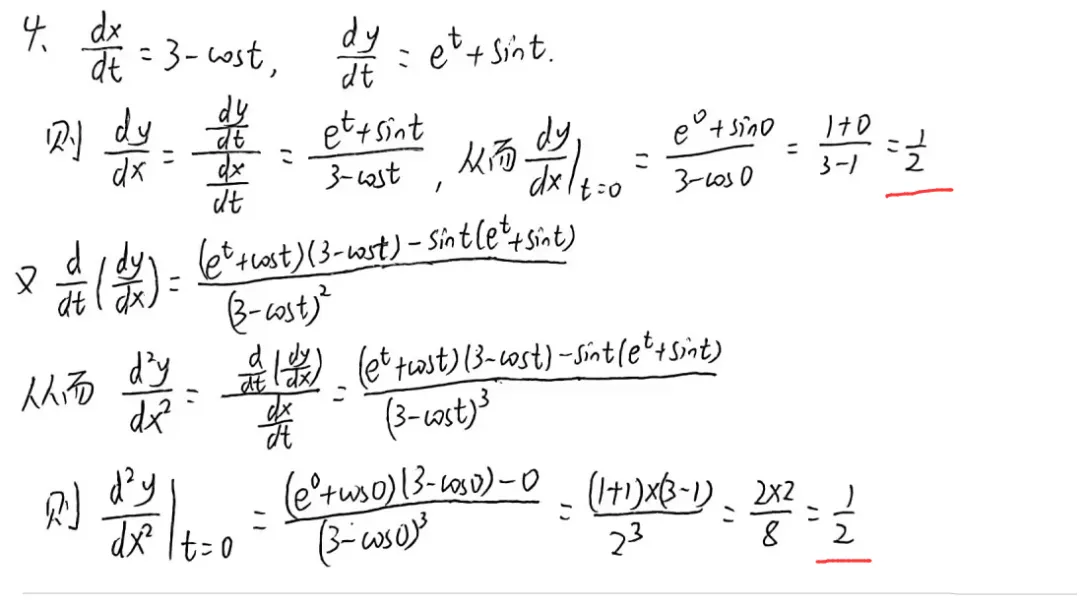 4、 dx/dt = 3-cost, dy/dt = e^t+sint.
则 dy/dx = (dy/dt)/(dx/dt) = (e^t+sint)/(3-cost), 从而 dy/dx|_{t=0} = (e^0+sin0)/(3-cos0) = (1+0)/(3-1) = 1/2
又 d/dt(dy/dx) = ((e^t+cost)(3-cost)-sint(e^t+sint))/(3-cost)^2
从而 d²y/dx² = (d/dt(dy/dx))/(dx/dt) = ((e^t+cost)(3-cost)-sint(e^t+sint))/(3-cost)^3
则 d²y/dx²|_{t=0} = ((e^0+cos0)(3-cos0)-0)/(3-cos0)^3 = ((1+1)×(3-1))/2^3 = (2×2)/8 = 1/2